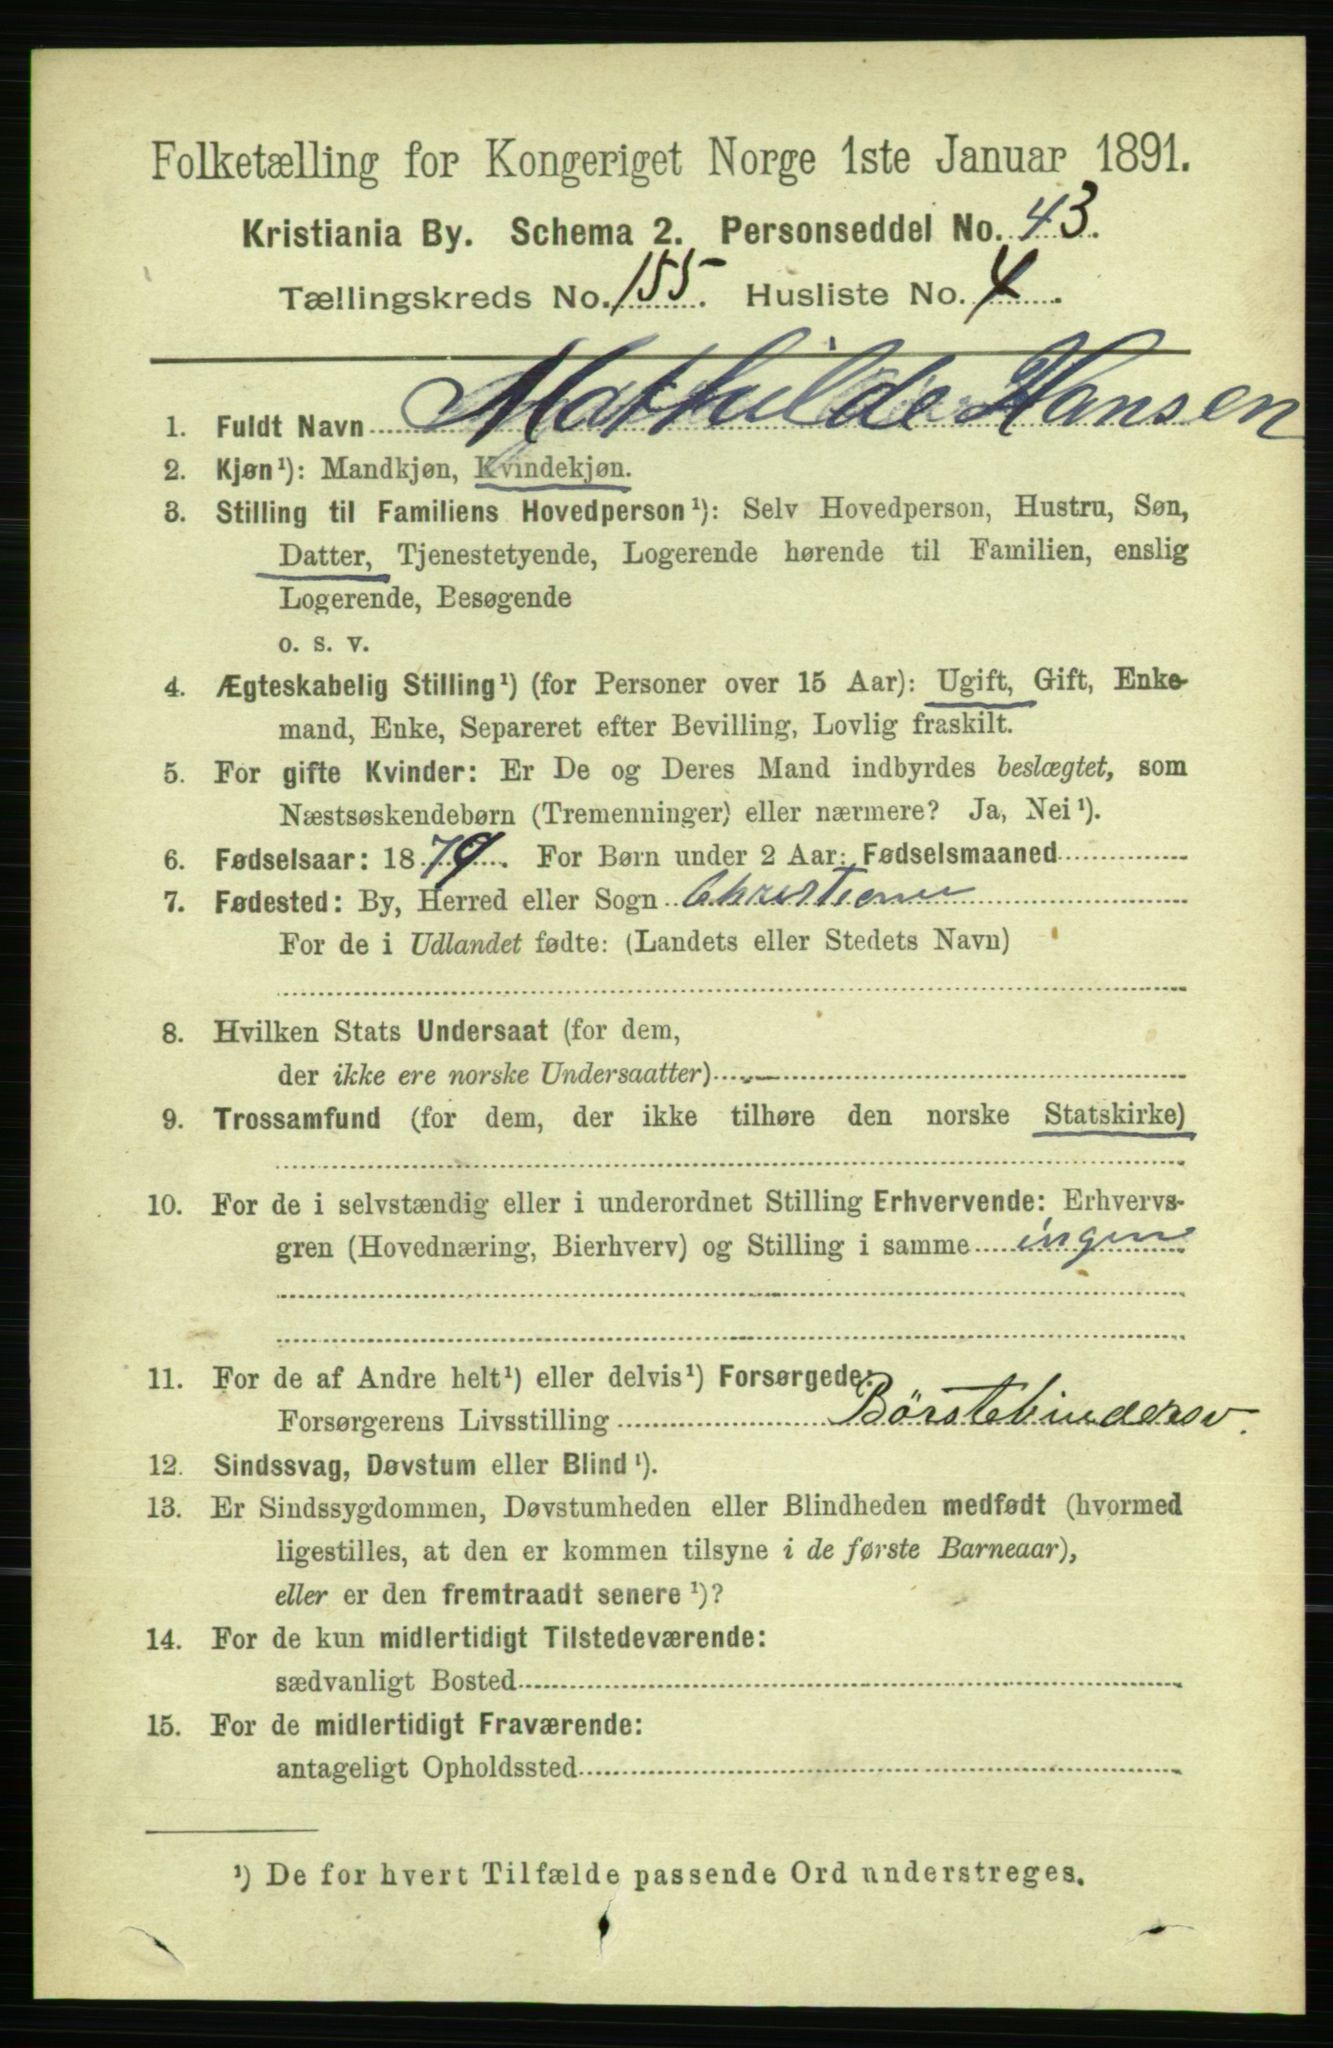 Folketælling for Kongeriget Norge 1ste Januar 1891.
Kristiania By. Schema 2. Personseddel No. 43.
Tællingskreds No. 155. Husliste No. 4.
1. Fuldt Navn Mathilde Hansen
2. Kjøn¹): Mandkjøn, Kvindekjøn.
3. Stilling til Familiens Hovedperson¹): Selv Hovedperson, Hustru, Søn,
Datter, Tjenestetyende, Logerende hørende til Familien, enslig
Logerende, Besøgende
o. s. v.
4. Ægteskabelig Stilling¹) (for Personer over 15 Aar): Ugift, Gift, Enke-
mand, Enke, Separeret efter Bevilling, Lovlig fraskilt.
5. For gifte Kvinder: Er De og Deres Mand indbyrdes beslægtet, som
Næstsøskendebørn (Tremenninger) eller nærmere? Ja, Nei¹).
6. Fødselsaar: 1879. For Børn under 2 Aar: Fødselsmaaned
7. Fødested: By, Herred eller Sogn
For de i Udlandet fødte: (Landets eller Stedets Navn)
8. Hvilken Stats Undersaat (for dem,
der ikke ere norske Undersaatter)
9. Trossamfund (for dem, der ikke tilhøre den norske Statskirke)
10. For de i selvstændig eller i underordnet Stilling Erhvervende: Erhvervs-
gren (Hovednæring, Bierhverv) og Stilling i samme ingen
11. For de af Andre helt¹) eller delvis¹) Forsørgede:
Forsørgerens Livsstilling Børstebindersv.
12. Sindssvag, Døvstum eller Blind¹).
13. Er Sindssygdommen, Døvstumheden eller Blindheden medfødt (hvormed
ligestilles, at den er kommen tilsyne i de første Barneaar),
eller er den fremtraadt senere¹)?
14. For de kun midlertidigt Tilstedeværende:
sædvanligt Bosted
15. For de midlertidigt Fraværende:
antageligt Opholdssted
¹) De for hvert Tilfælde passende Ord understreges.